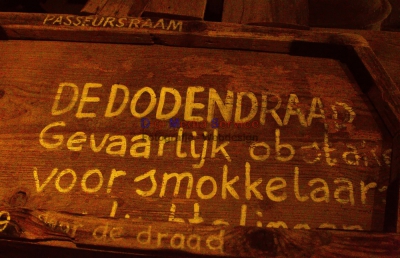 PASSEURSRAAM
DE DODENDRAAD
Gevaarlijk obstake
voor smokkelaar
de draad